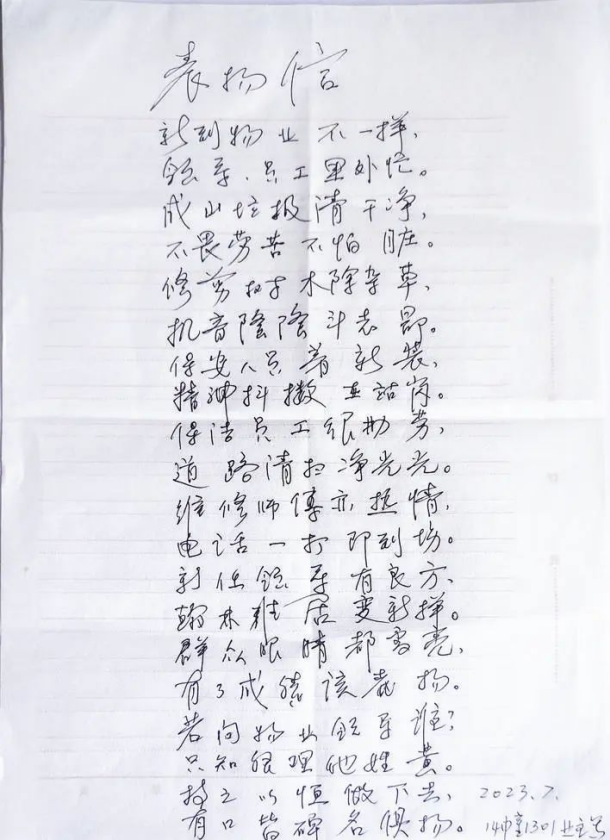 表扬信
新到物业不一样，
领导、员工里外忙。
成山垃圾清干净，
不畏劳苦不怕脏。
修剪树木除杂草，
机音隆隆斗志昂。
保安人员着新装，
精神抖擞在站岗。
保洁员工很勤劳，
道路清扫净光光。
维修师傅亦热情，
电话一打即到场。
新任领导有良方，
翰林雅居变新样。
群众眼睛都雪亮，
有了成绩该表扬。
若问物业领导谁？
只知经理他姓黄。
持之以恒做下去，
有口皆碑名俱扬。
2023.7.
14幢1301业主